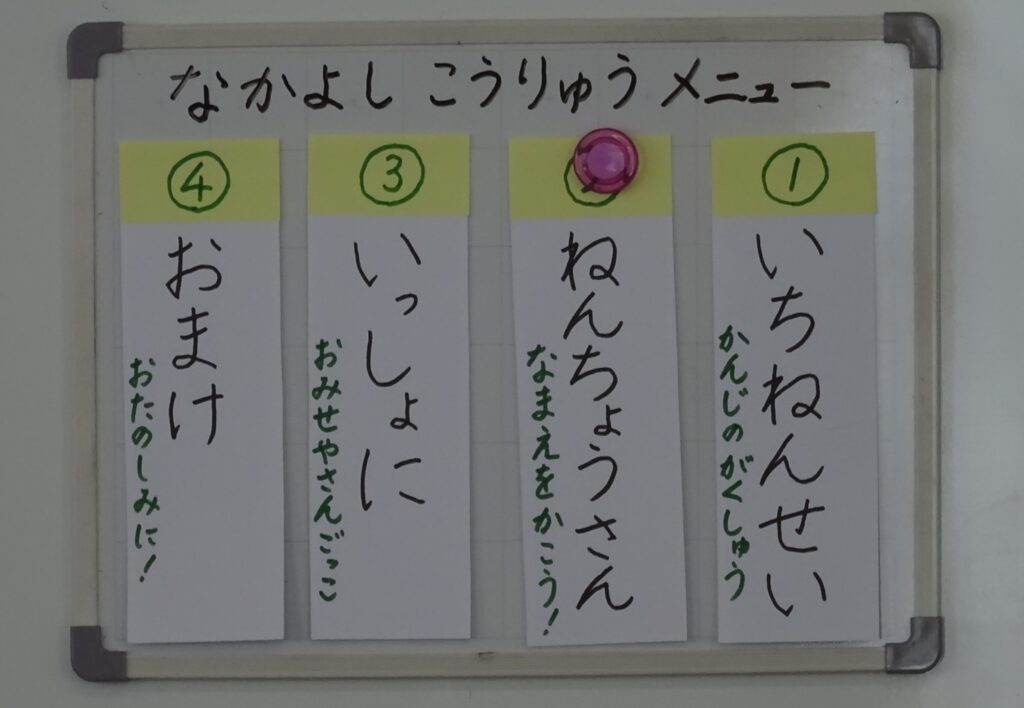 なかよし こうりゅう メニュー
①
いちねんせい
かんじのがくしゅう
ねんちょうさん
なまえをかこう!
③
いっしょに
おみせやさんごっこ
④
おまけ
おたのしみに!